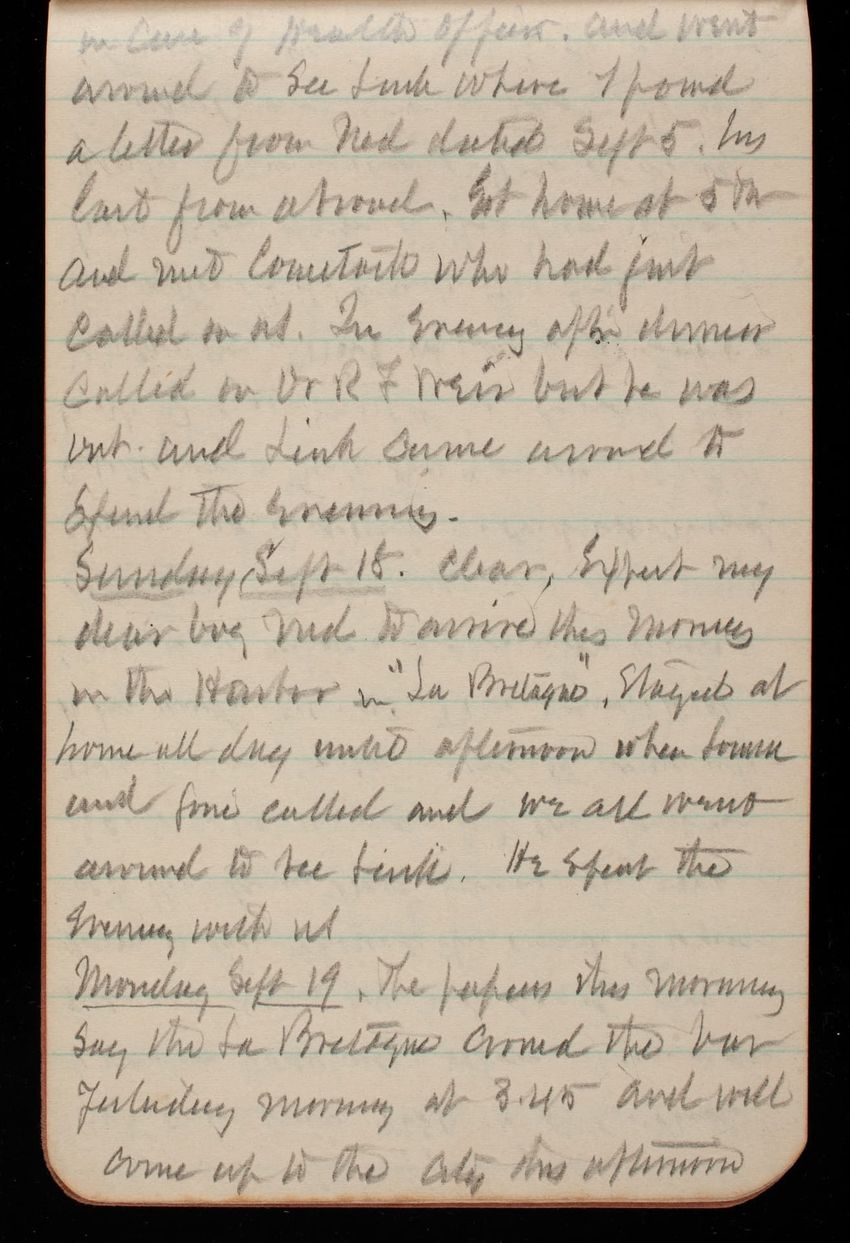 in Care of Health Officer. and went
around to see Link where I found
a letter from Ned dated Sept 5. his
last from abroad. Got home at 5 PM
and met Comstock who had just
called on us. In Evening after dinner
called on Dr R F Weir but he was
out. and Link came around to
Spend the Evening.
Sunday Sept 18. Clear, Expect my
dear boy Ned to arrive this Morning
in the Harbor in "La Bretagne". Stayed at
home all day until afternoon when
and called and we all went
around to see Link. He spent the
Evening with us
Monday Sept 19. The papers this morning
Say the La Bretagne crossed the bar
morning at 3.45 and will
come up to the City this afternoon